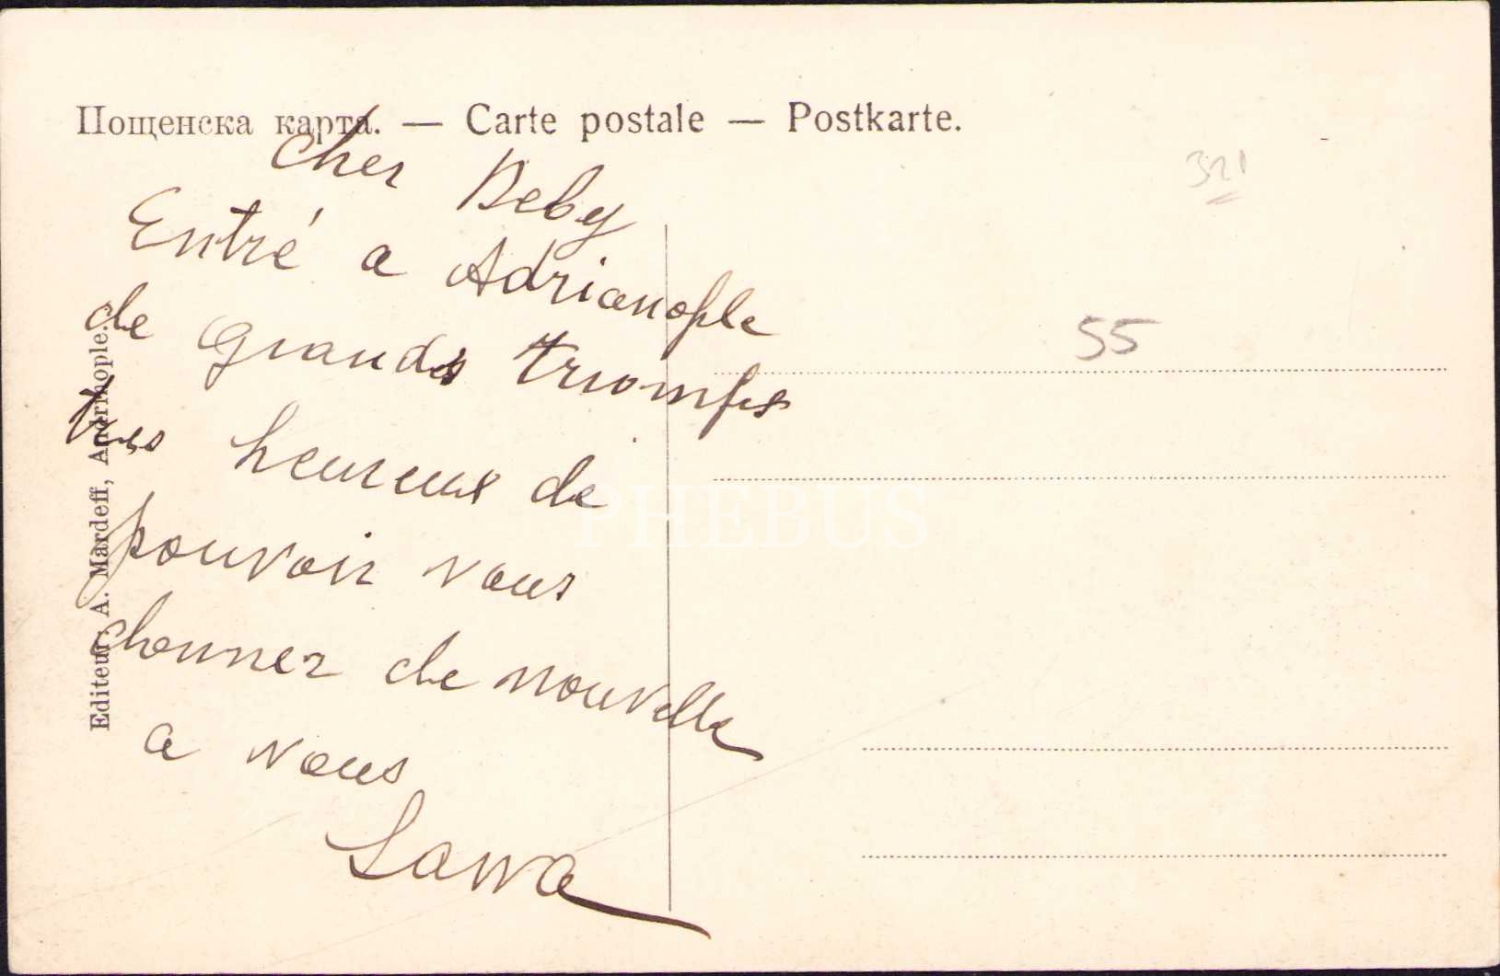 Пощенска карта. — Carte postale — Postkarte.
321
Cher Beby
Entré a Adrianople
de grands triomfes
tres heureux de
pouvoir vous
donner de nouvelle
a vous
Sawa
55
Editeur: A. Mardeff, Andrinople.
PHEBUS